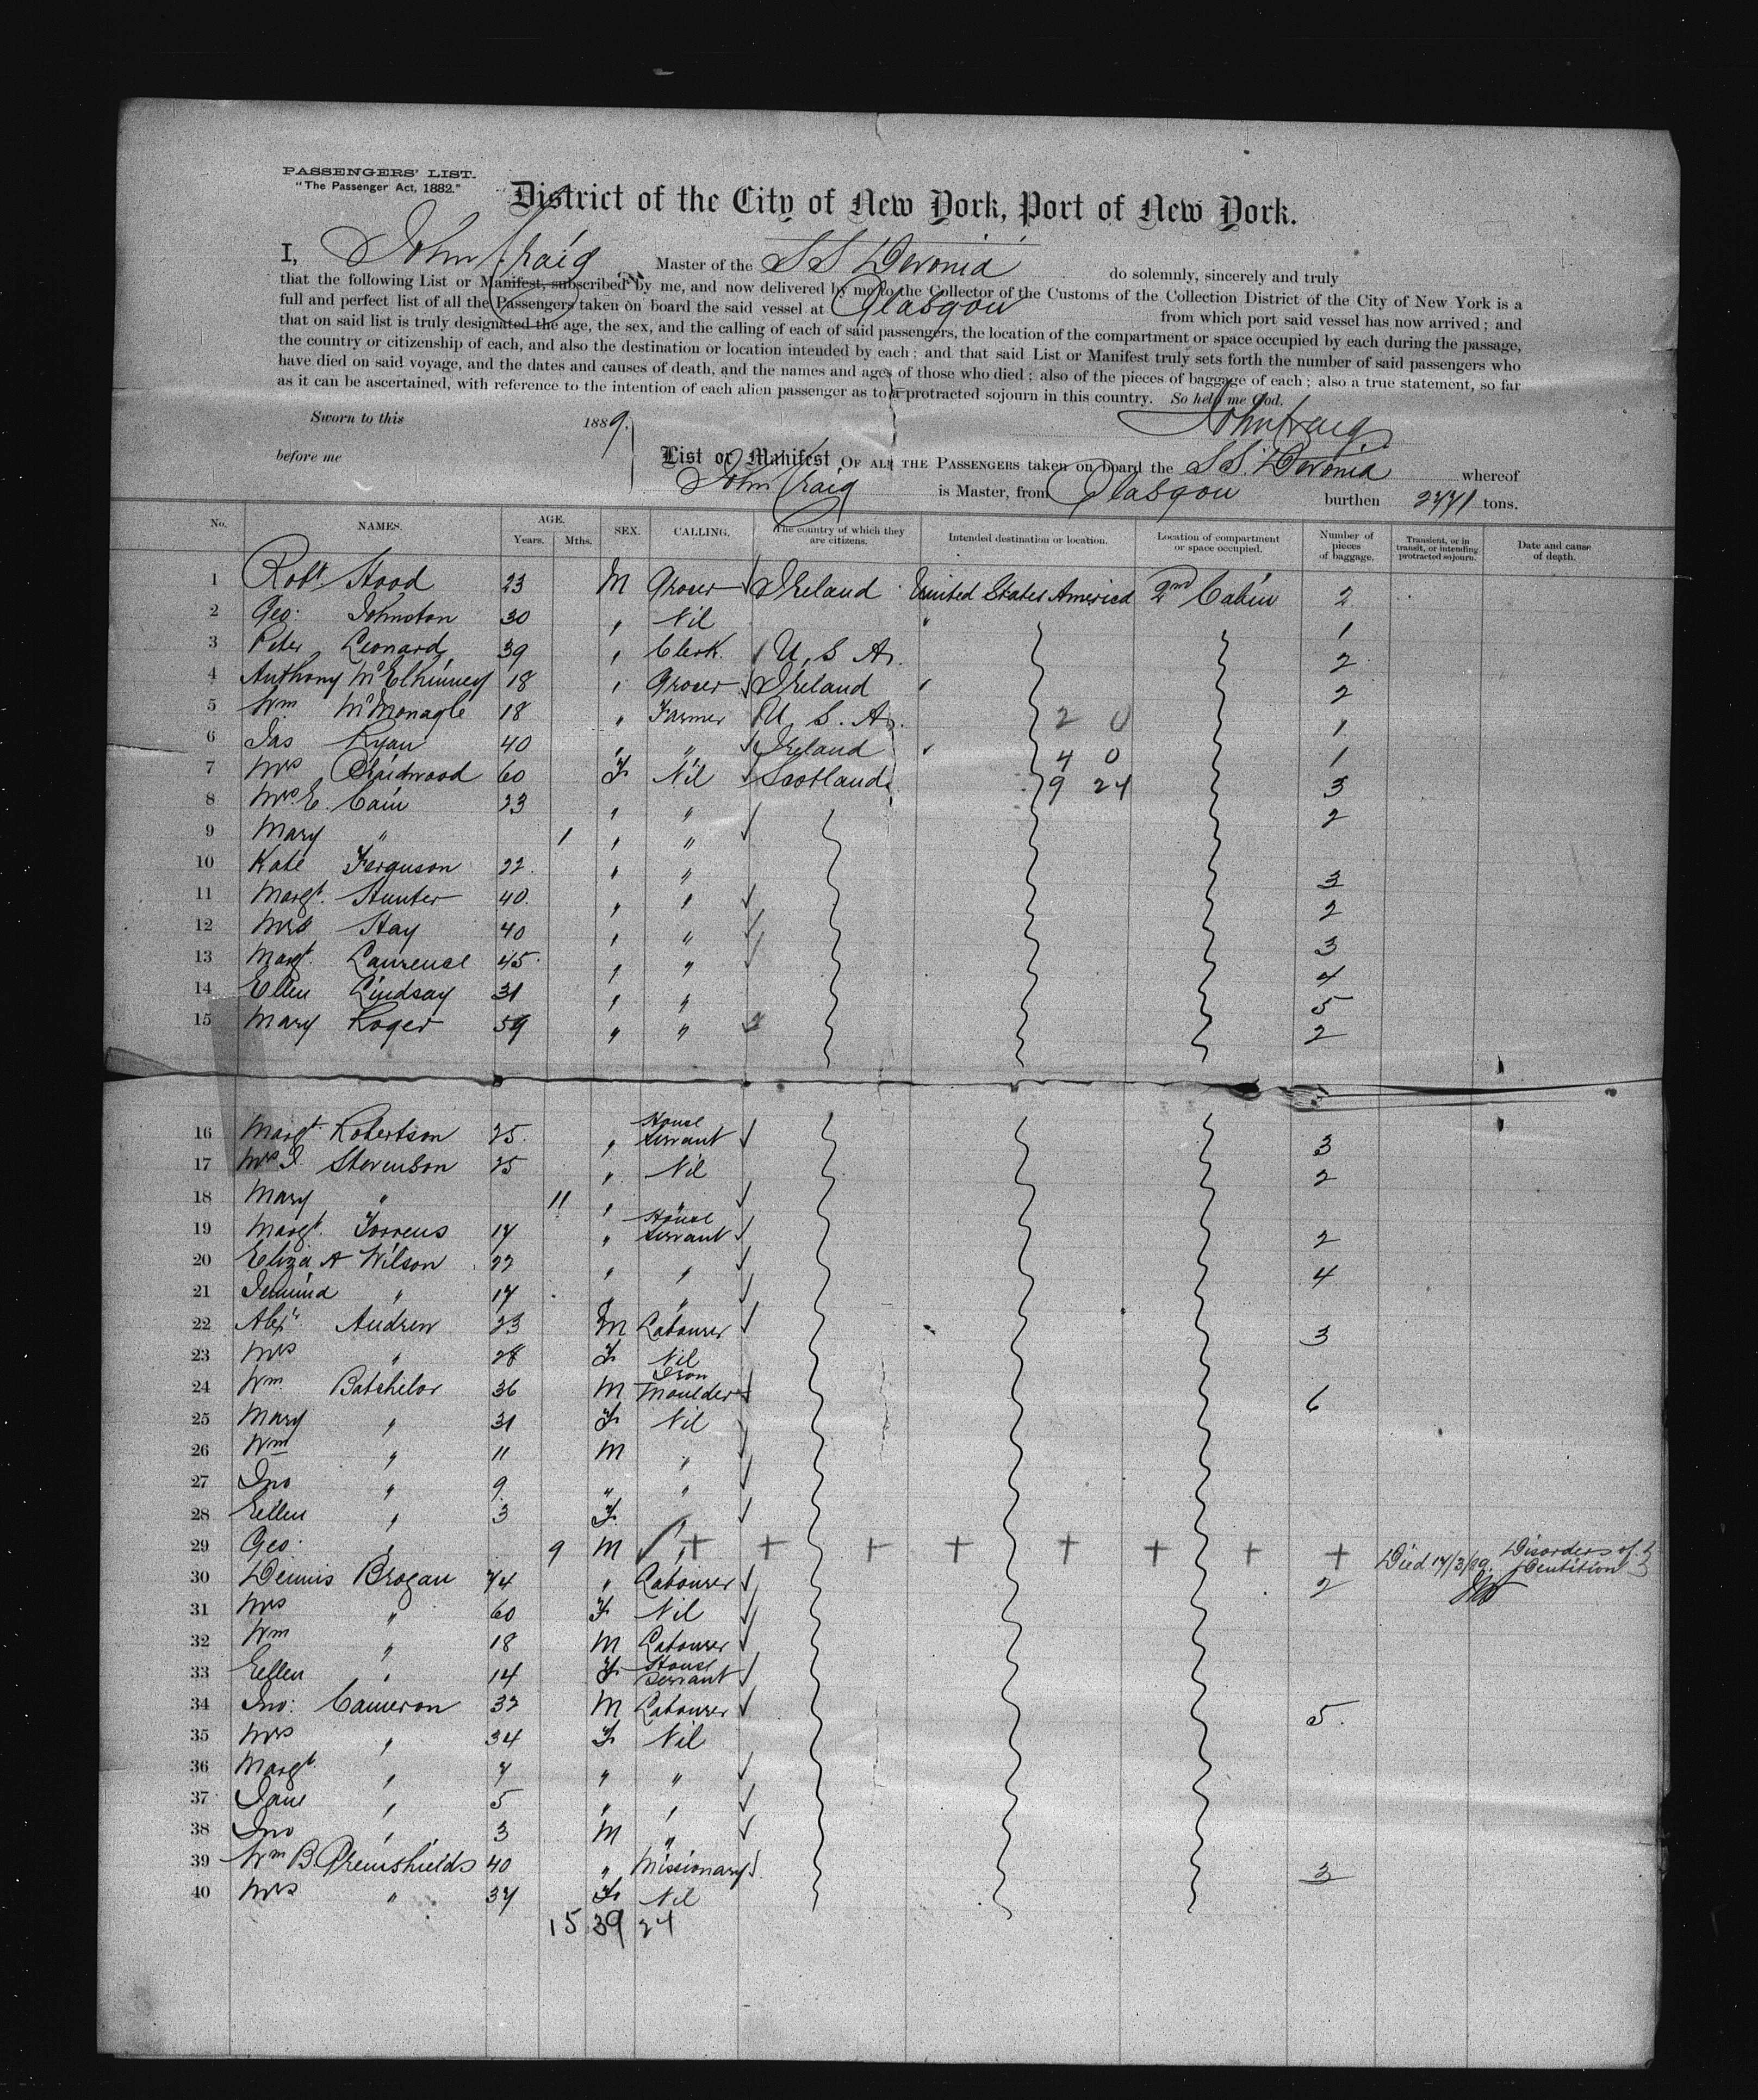 PASSENGERS' LIST.
"The Passenger Act, 1882."
District of the City of New York, Port of New York.
I, John Craig Master of the SS Devonia do solemnly, sincerely and truly
that the following List or Manifest, subscribed by me, and now delivered by me to the Collector of the Customs of the Collection District of the City of New York is a
full and perfect list of all the Passengers taken on board the said vessel at Glasgow from which port said vessel has now arrived; and
that on said list is truly designated the age, the sex, and the calling of each of said passengers, the location of the compartment or space occupied by each during the passage,
the country or citizenship of each, and also the destination or location intended by each; and that said List or Manifest truly sets forth the number of said passengers who
have died on said voyage, and the dates and causes of death, and the names and ages of those who died; also of the pieces of baggage of each; also a true statement, so far
as it can be ascertained, with reference to the intention of each alien passenger as to a protracted sojourn in this country. So help me God.
Sworn to this 1889. John Craig
before me
List or Manifest OF ALL THE PASSENGERS taken on board the SS. Devonia whereof
John Craig is Master, from Glasgow burthen 2771 tons.
No. NAMES. AGE. Years. Mths. SEX. CALLING. The country of which they are citizens. Intended destination or location. Location of compartment or space occupied. Number of pieces of baggage. Transient, or in transit, or intending protracted sojourn. Date and cause of death.
1 Robt Hood 23 M Grocer Ireland United States America 2nd Cabin 2
2 Geo: Johnston 30 " Nil " 1
3 Peter Leonard 39 " Clerk. U. S. A. 2
4 Anthony McElhinney 18 " Grocer Ireland 2
5 Wm McMonagle 18 " Farmer U. S. A. 2 0 1
6 Jas Ryan 40 " " Ireland 4 0 1
7 Mrs Chidwood 60 F Nil Scotland 9 24 3
8 Mrs. E. Cain 23 " " 2
9 Mary " 1 " "
10 Kate Ferguson 22. " " 3
11 Margt. Hunter 40. " " 2
12 Mrs Hay 40 " " 3
13 Margt. Laurence 45. " " 4
14 Ellen Lindsay 31 " " 5
15 Mary Roger 59 " " 2
16 Margt. Robertson 25. " House Servant 3
17 Mrs J. Stevenson 25 " Nil 2
18 Mary " 11 " "
19 Margt. Torrens 17 " House Servant 2
20 Eliza A Wilson 22 " " 4
21 Jemima " 17 " "
22 Alexr. Andrew 23 M Labourer 3
23 Mrs " 28 F Nil
24 Wm. Batchelor 36 M Iron Moulder 6
25 Mary " 31 F Nil
26 Wm " 11 M "
27 Jno " 9 " "
28 Ellen " 3 F. "
29 Geo. " 9 M " + + + + + + + + Died 17/3/89. Disorders of Dentition
30 Dennis Brogan 74 " Labourer 2
31 Mrs " 60 F Nil
32 Wm " 18 M Labourer
33 Ellen " 14 F House Servant
34 Jno: Cameron 32 M Labourer 5.
35 Mrs " 34 F Nil
36 Margt. " 7 " "
37 Jane " 5 " "
38 Jno " 3 M "
39 Wm B. Greenshields 40 " Missionary 3
40 Mrs " 37 F Nil
15 39 24